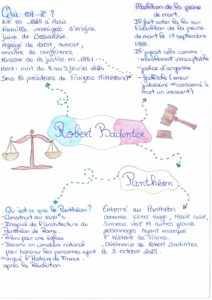 Qui est-il ?
Né en 1928 à Paris
Famille immigrée d'origine
juive de Bessarabie.
Agrégé de droit, avocat,
maître de conférence
Ministre de la justice en 1981
Mort : nuit du 8 au 9 février 2024
Sous la présidence de François Mitterand
Abolition de la peine
de mort.
Il fait voter la loi sur
l'abolition de la peine
de mort le 17 septembre
1981.
Il voyait cela comme :
- moralement inacceptable
- justice d'angoisse
- justice d'erreur
judiciaire → condamné à
mort un innocent)
Robert Badinter
Panthéon
Qu'est ce que le Panthéon ?
- Construit au
- Inspiré de l'architecture du
Panthéon de Rome
- Prévu pour une église
- Devenu un cimetière national
pour honorer les personnes ayant
marqué l'Histoire de France
après la Révolution.
Enterré au Panthéon
comme Victor Hugo, Marie Curie,
Simone Veil et autres grands
personnages ayant marqué
l'Histoire de France.
- Cérémonie de Robert Badinter
le 9 octobre 2025.